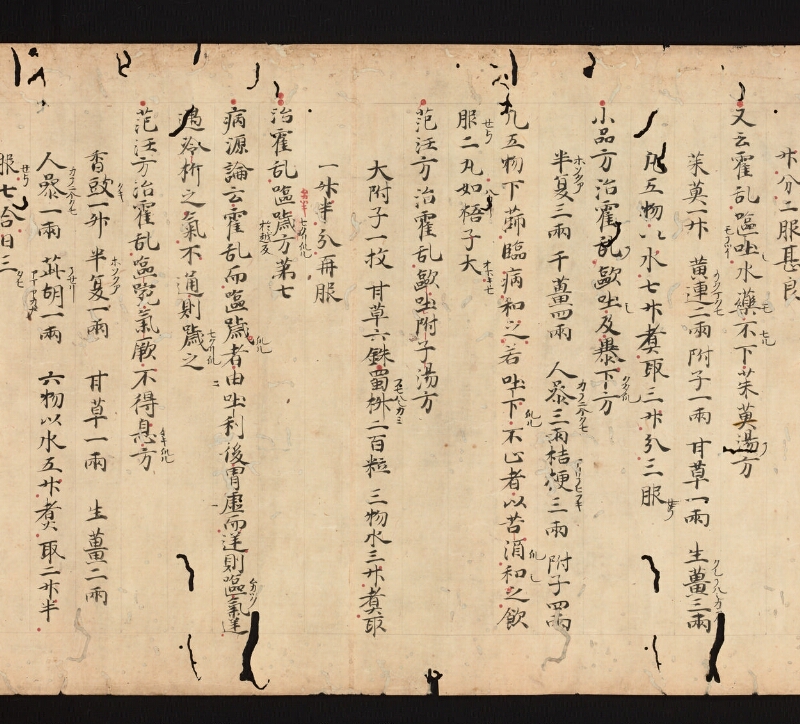 升分二服甚良
又云霍乱嘔吐水藥不下茱萸湯方
茱萸一升 黄連二兩 附子一兩 甘草一兩 生薑三兩
凡五物以水七升煮取三升分三服
小品方治霍乱歐吐及暴下方
半夏三兩 干薑四兩 人參三兩 桔梗三兩 附子四兩
凡五物下篩臨病和之若吐下不止者以苦酒和之飲
服二丸如梧子大
范汪方治霍乱歐吐附子湯方
大附子一枚 甘草六銖 蜀椒二百粒 三物水三升煮取
一升半分再服
治霍乱嘔噦方第七
病源論云霍乱而嘔噦者由吐利後胃虚而逆則嘔氣逆
遇冷折之氣不通則噦之
范汪方治霍乱嘔噦氣厥不得息方
香豉一升 半夏一兩 甘草一兩 生薑二兩
人參一兩 茈胡一兩 六物以水五升煮取二升半
服七合日三